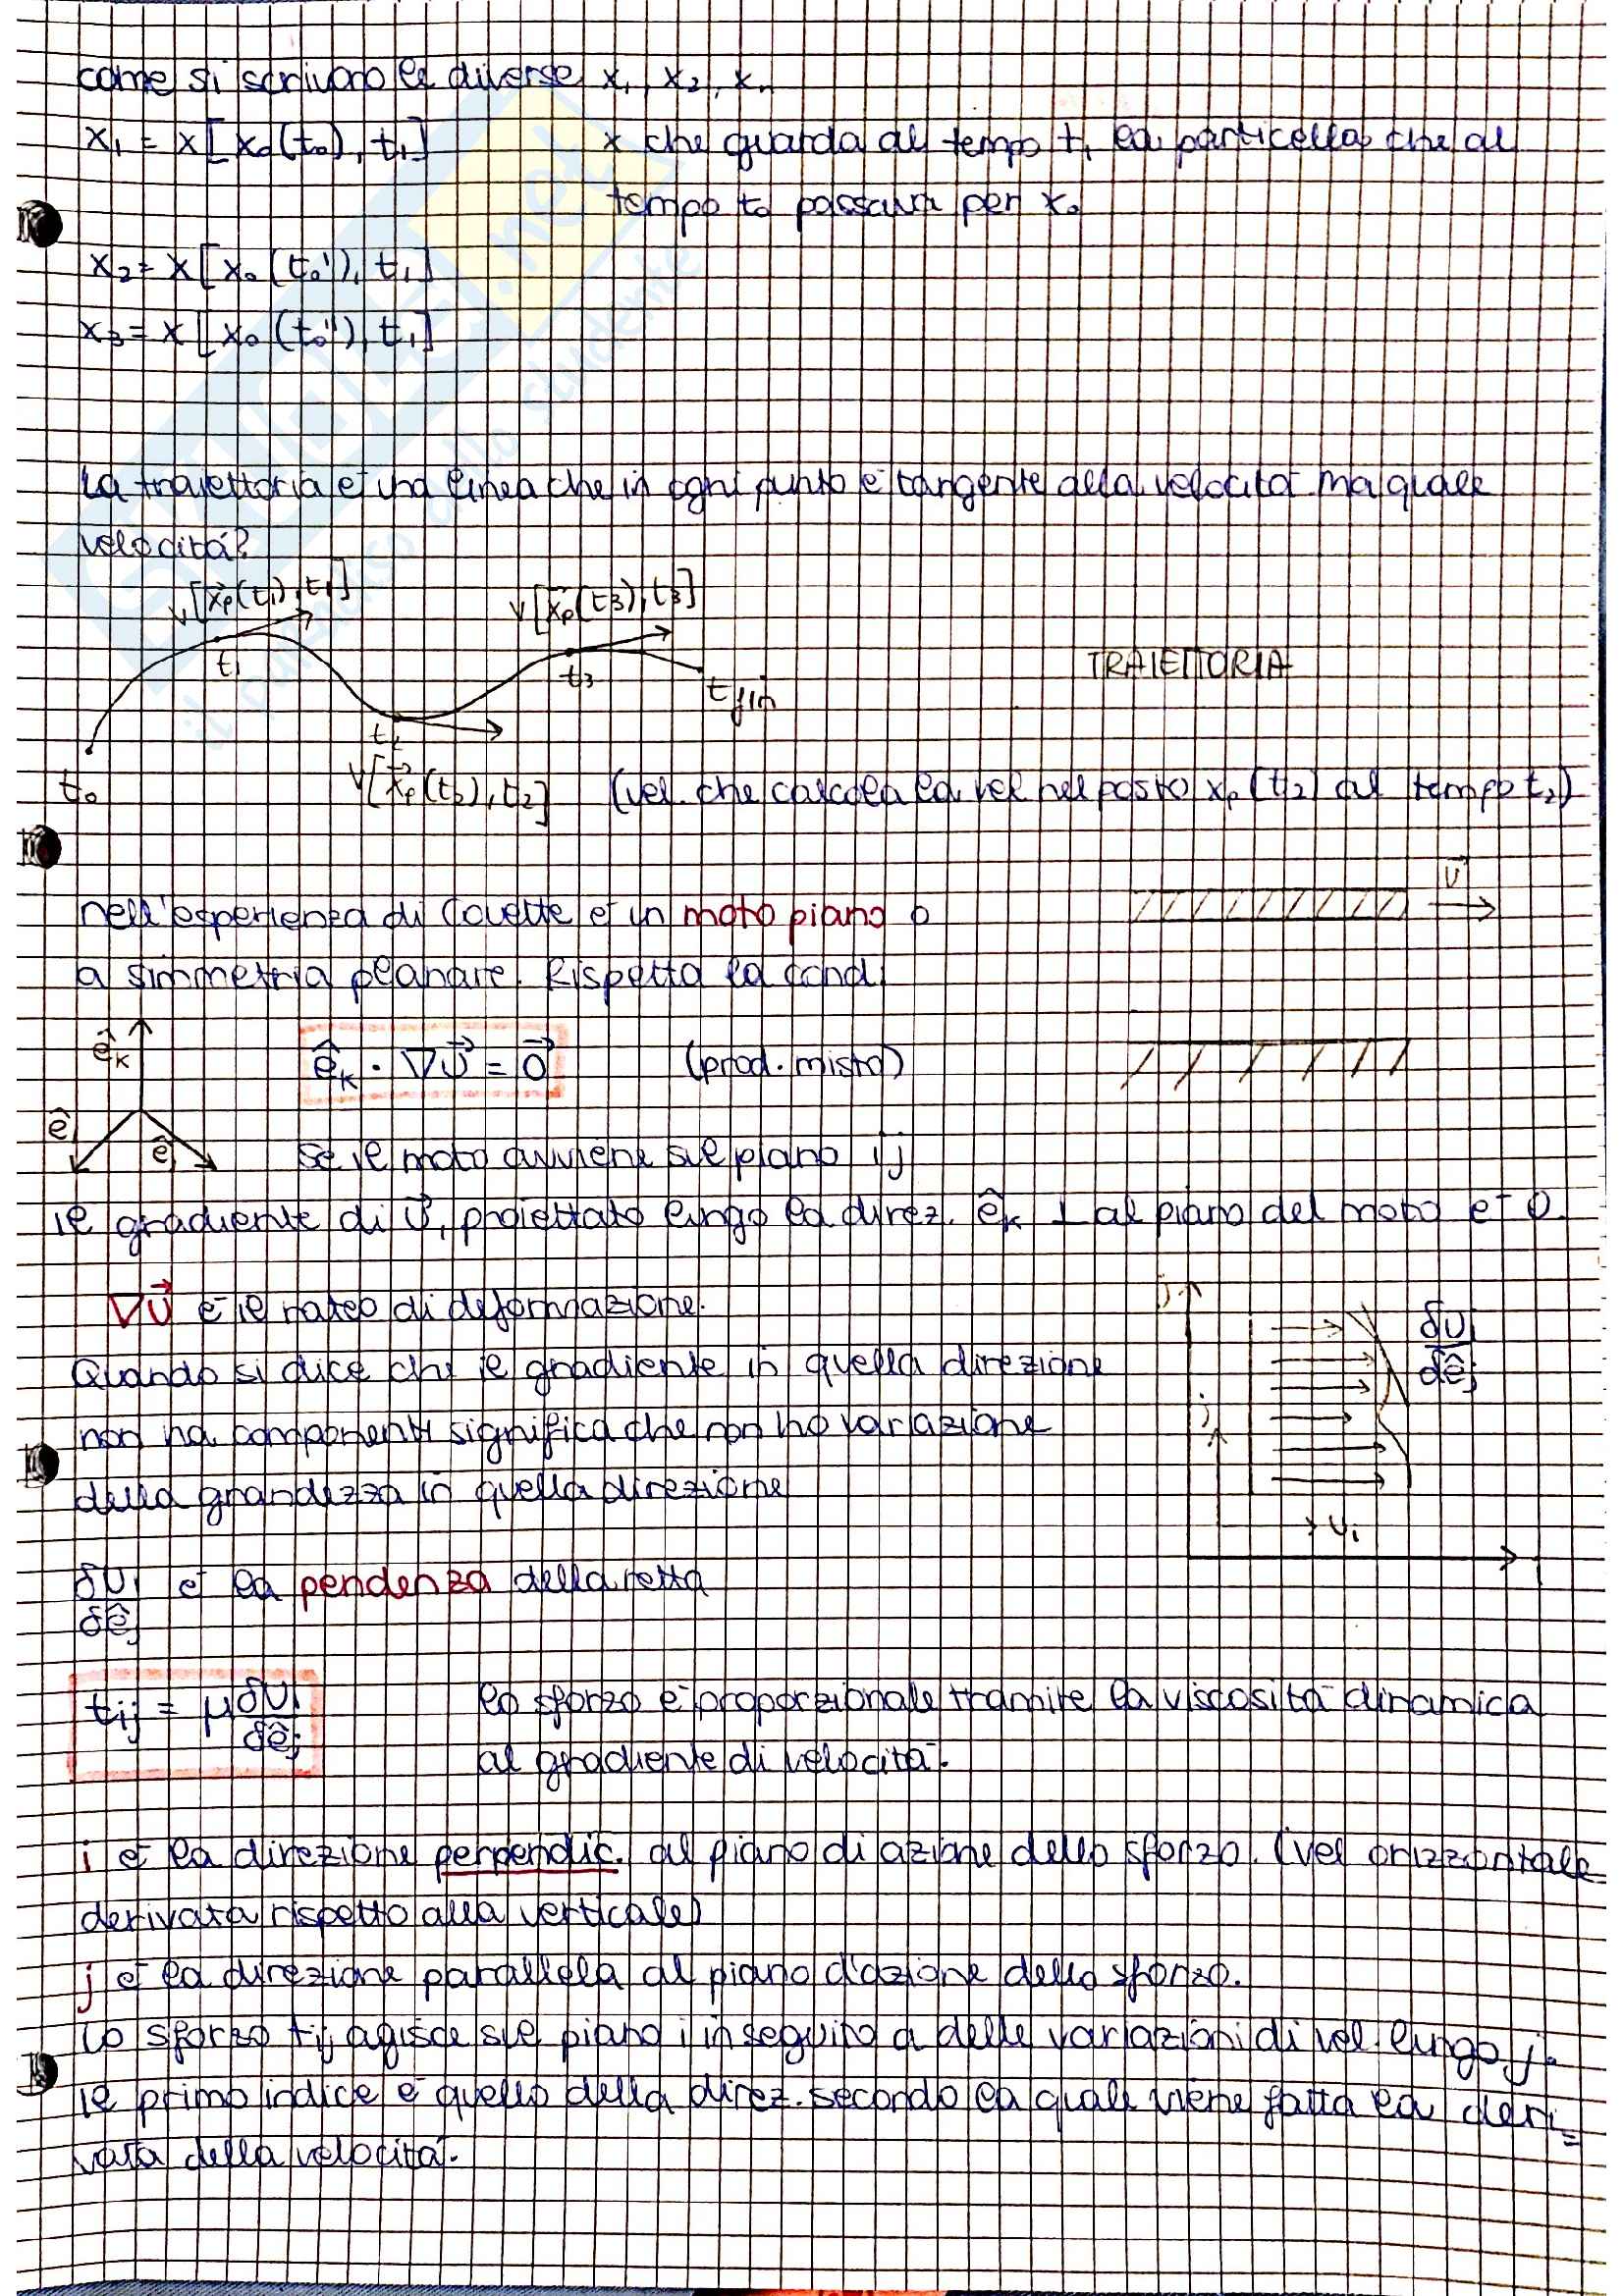 come si scrivono le diverse x₁, x₂, xₙ
x₁ = x[x₀(t₀), t₁] x che guarda al tempo t₁ la particella che al
tempo t₀ passava per x₀
x₂ = x[x₀(t₀'), t₁]
x₃ = x[x₀(t₀''), t₁]
SKUOLA.net
il paradiso dello studente
La traiettoria è una linea che in ogni punto è tangente alla velocità ma quale
velocità?
v[x⃗ₚ(t₁), t₁] v[x⃗ₚ(t₃), t₃]
t₁ t₃ TRAIETTORIA
t fin
t₂
t₀ v[x⃗ₚ(t₂), t₂] (vel. che calcola la vel nel posto xₚ(t₂) al tempo t₂)
U⃗
nell'esperienza di Couette è un moto piano o
a simmetria planare. Rispetta la cond.
êₖ
êₖ · ∇U⃗ = 0⃗ (prod. misto)
êᵢ êⱼ
se il moto avviene sul piano ij
il gradiente di U⃗, proiettato lungo la direz. êₖ ⊥ al piano del moto è 0.
∇U⃗ è il rateo di deformazione.
Quando si dice che il gradiente in quella direzione
non ha componenti significa che non ho variazione
della grandezza in quella direzione
j
δUᵢ/δêⱼ
j
→ Uᵢ
i
δUᵢ/δêⱼ è la pendenza della retta
tij = μ δUᵢ/δêⱼ lo sforzo è proporzionale tramite la viscosità dinamica
al gradiente di velocità.
i è la direzione perpendic. al piano di azione dello sforzo. (vel orizzontale
derivata rispetto alla verticale)
j è la direzione parallela al piano d'azione dello sforzo.
Lo sforzo tij agisce sul piano i in seguito a delle variazioni di vel. lungo j.
il primo indice è quello della direz. secondo la quale viene fatta la deri=
vata della velocità.